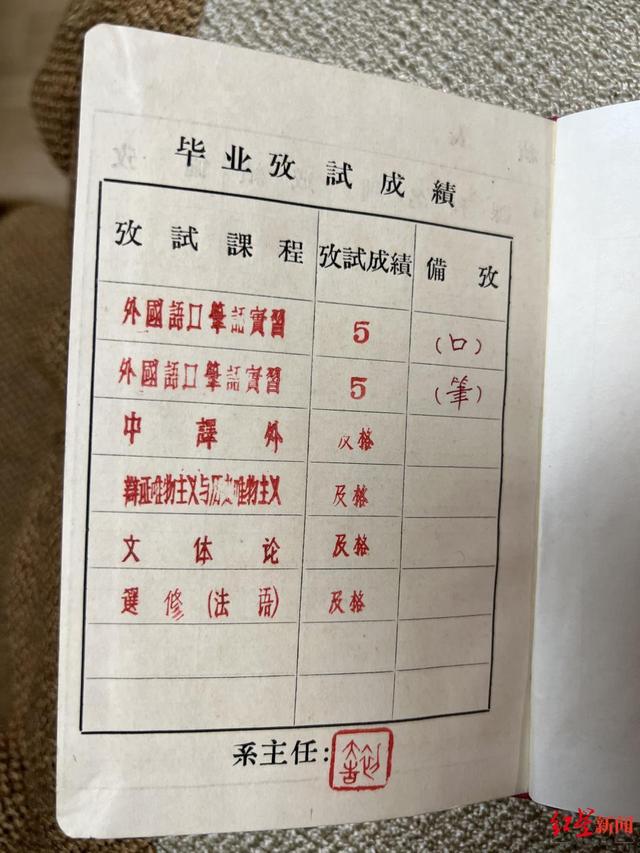 毕业攷試成績
攷試課程 攷試成績 備攷
外國語口筆語實習 5 (口)
外國語口筆語實習 5 (筆)
中譯外 及格
辯证唯物主义与历史唯物主义 及格
文体论 及格
選修(法语) 及格
系主任:
红星新闻